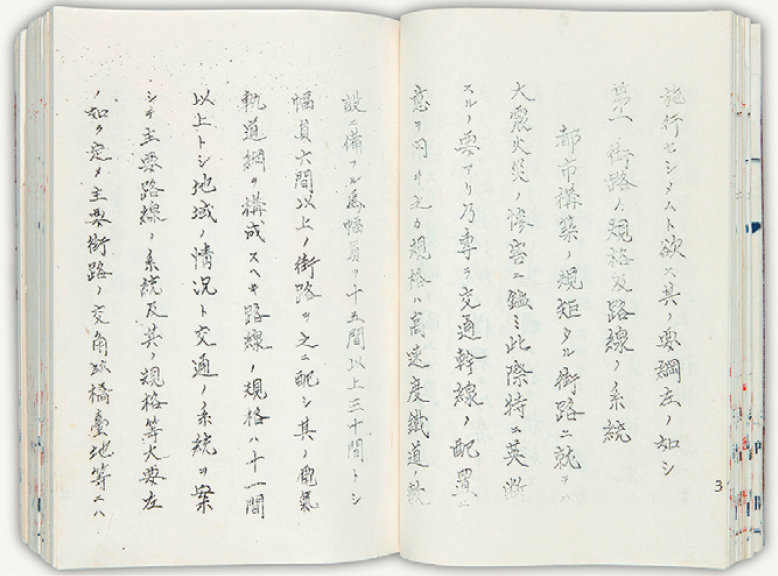 施行セシメムト欲ス其ノ要綱左ノ如シ
第一 街路ノ規格及路線ノ系統
都市構築ノ規矩タル街路ニ就テハ
大震火災ノ惨害ニ鑑ミ此際特ニ英断
スルノ要アリ乃専ラ交通幹線ノ配置ニ
意ヲ用ヰ之カ規格ハ高速度鐵道ノ敷
設ニ備フル為幅員ヲ十五間以上三十間トシ
幅員六間以上ノ街路ヲ之ニ配シ其ノ電氣
軌道網ヲ構成スヘキ路線ノ規格ハ十一間
以上トシ地域ノ情況ト交通ノ系統ヲ案
シテ主要路線ノ系統及其ノ規格等大要左
ノ如ク定メ主要街路ノ交角或橋臺地等ニハ
3